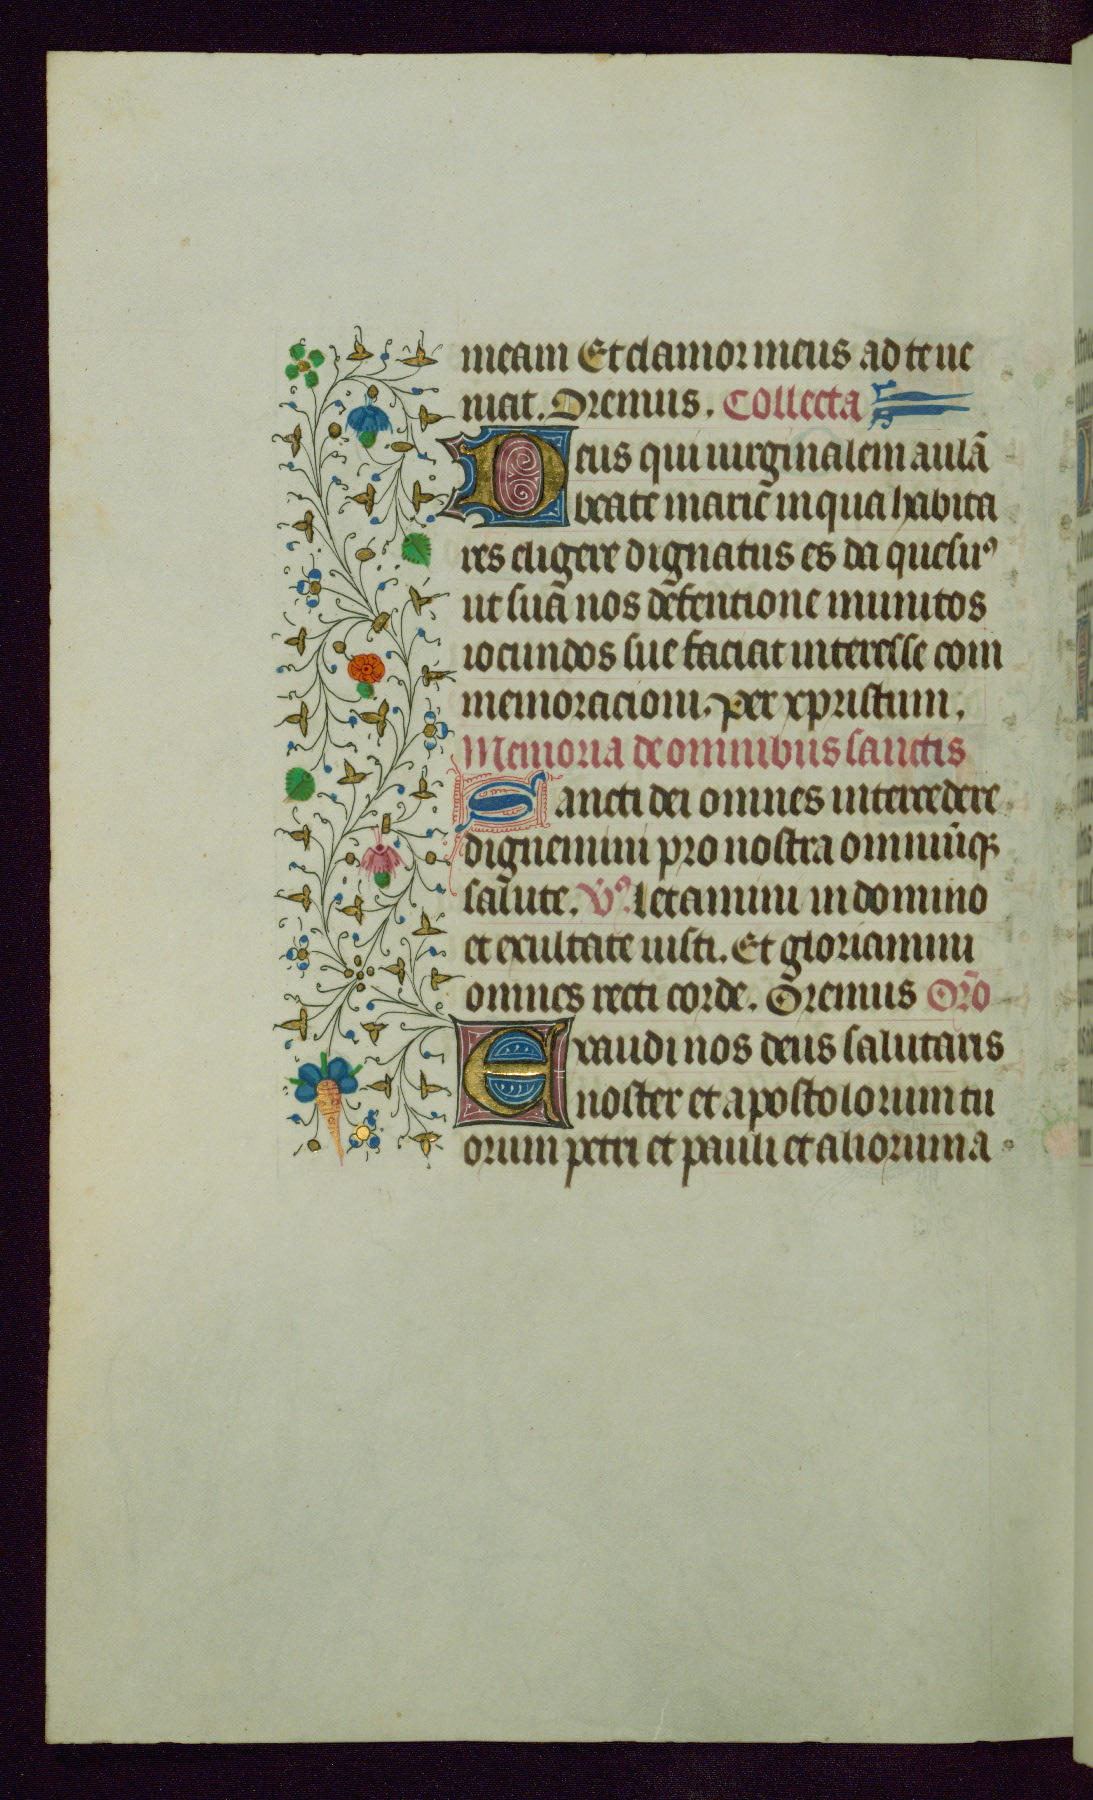 meam Et clamor meus ad te ue
niat. Oremus. Collecta
Deus qui uirginalem aulā
beate marie in qua habita
res eligere dignatus es da quesuꝰ
ut suā nos defentione munitos
iocundos sue faciat interesse com
memoracioni. per xpristum.
Memoria de omnibus sanctis
Sancti dei omnes intercedere
dignemini pro nostra omniūqꝫ
salute. v̄ꝰ. letamini in domino
et exultate iusti. Et gloriamini
omnes recti corde. Oremus Orō
Exaudi nos deus salutaris
noster et apostolorum tu
orum petri et pauli et aliorum a